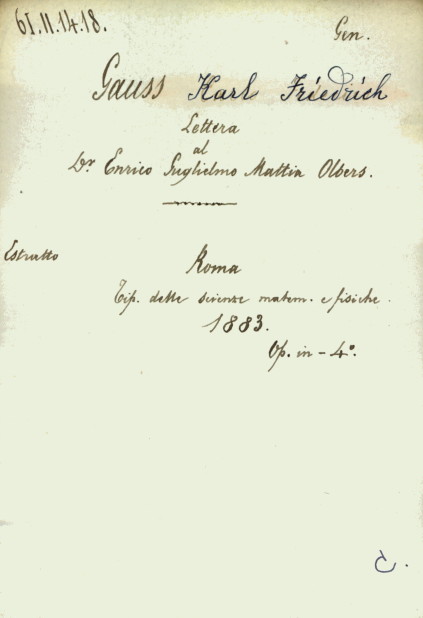 61.II.14.18.
Gen.
Gauss Karl Friedrich
Lettera
al
Dr Enrico Guglielmo Mattia Olbers.
Estratto
Roma
Tip. delle scienze matem. e fisiche.
1883.
Op. in-4°.